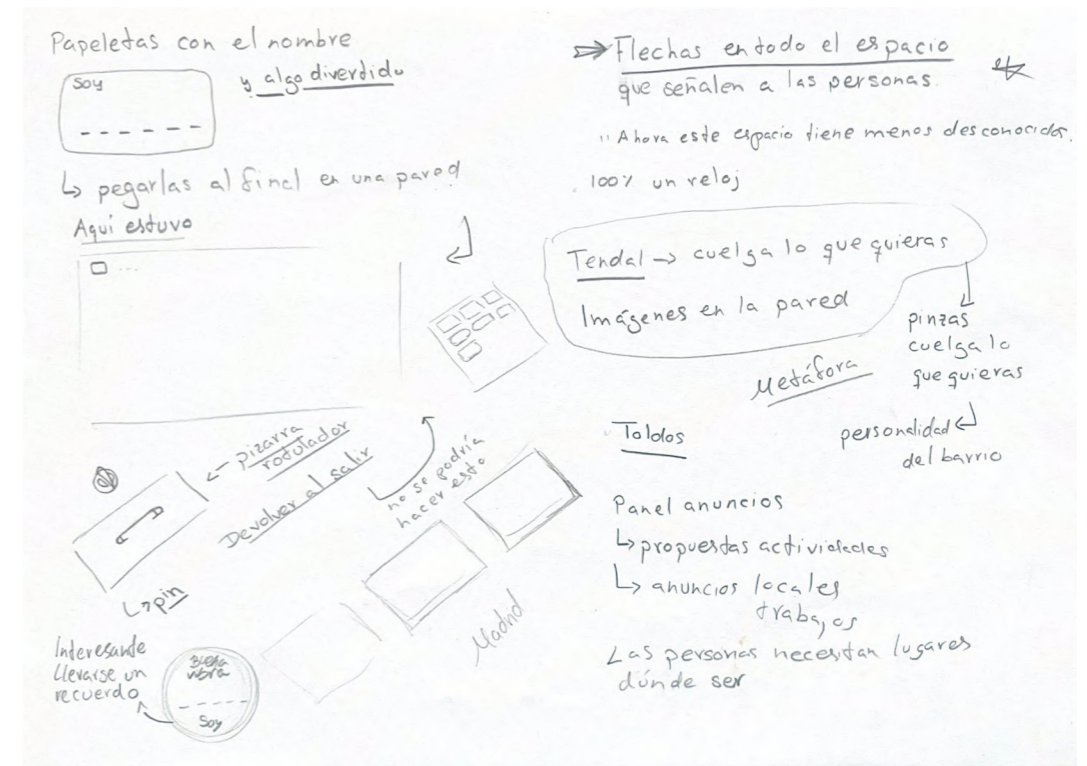 Papeletas con el nombre
y algo divertido
Soy
↳ pegarlas al final en una pared
Aquí estuvo
← pizarra
rotulador
Devolver al salir
no se podría
hacer esto
↳ pin
Madrid
Interesante
llevarse un
recuerdo
Buena
vibra
Soy
⇒ Flechas en todo el espacio
que señalen a las personas.
"Ahora este espacio tiene menos desconocidos.
100% un reloj
Tendal → cuelga lo que quieras
Imágenes en la pared
pinzas
cuelga lo
que quieras
Metáfora
personalidad
del barrio
Toldos
Panel anuncios
↳ propuestas actividades
↳ anuncios locales
trabajos
Las personas necesitan lugares
dónde ser